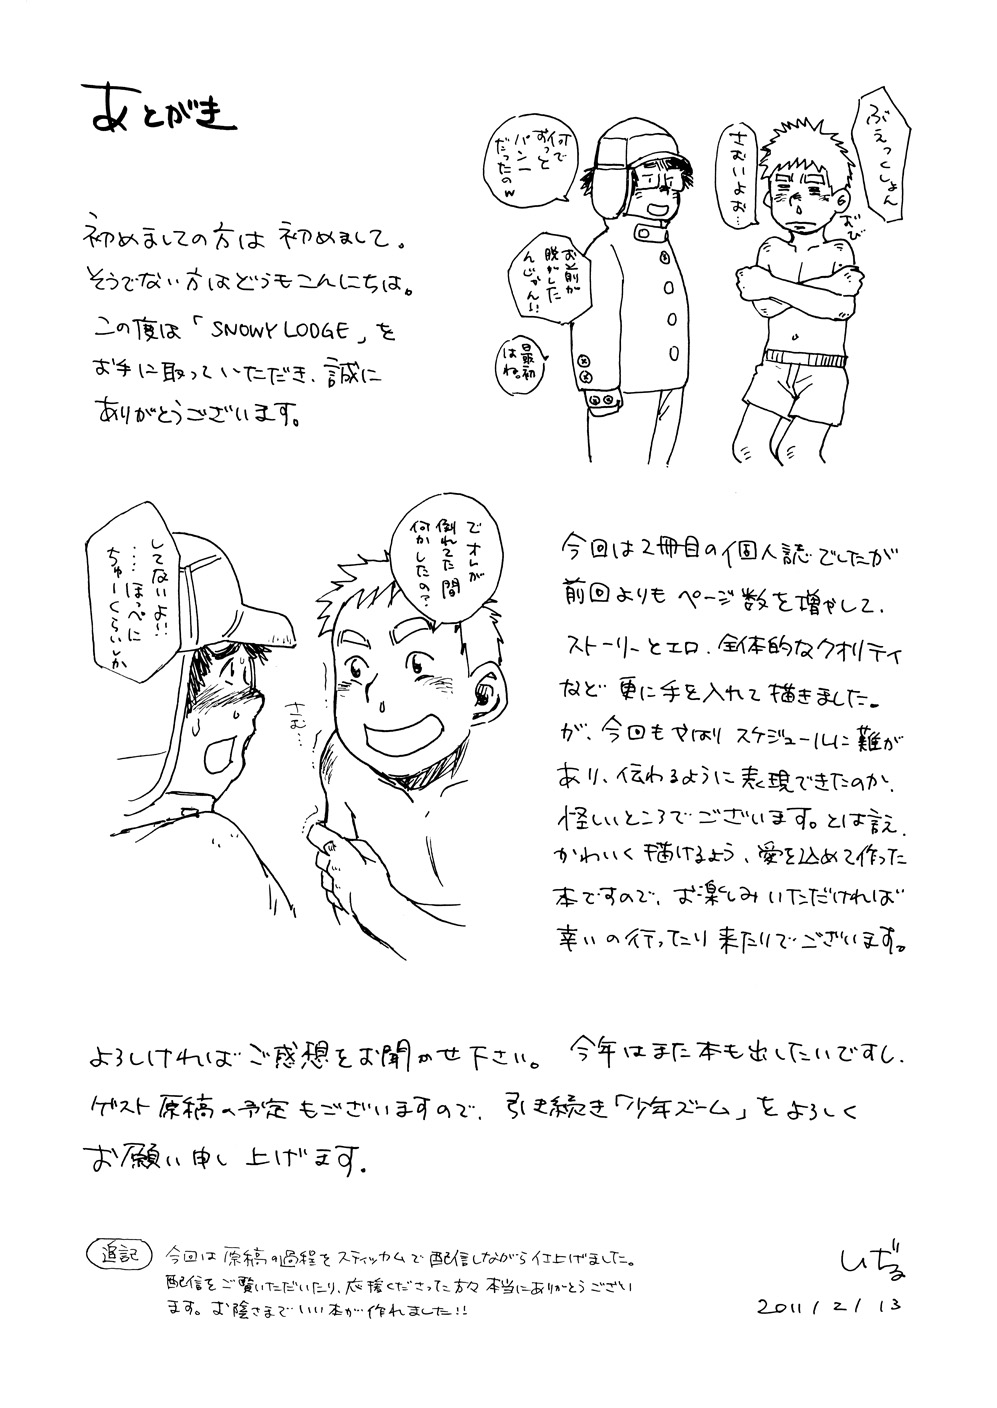 あとがき
ぶぇっくしょん
さむいよぉ…
おび
何で
おっと
パンー
だったのw
お前が
脱がした
んじゃん!!
最初
はね。
初めましての方は 初めまして。
そうでない方はどうもこんにちは。
この度は「SNOWY LODGE」を
お手に取っていただき、誠に
ありがとうございます。
でオレが
倒れてた間
何かしたの?
してないよ!!
…ほっぺに
ちゅーくらいしか
さむ…
今回は2冊目の個人誌でしたが
前回よりもページ数を増やして、
ストーリーとエロ、全体的なクオリティ
など更に手を入れて描きました。
が、今回もやはりスケジュールに難が
あり、伝わるように表現できたのか、
怪しいところでございます。とは言え、
かわいく描けるよう、愛を込めて作った
本ですので、お楽しみいただければ
幸いの行ったり来たりでございます。
よろしければご感想をお聞かせ下さい。 今年はまた本も出したいですし、
ゲスト原稿の予定もございますので、引き続き「少年ズーム」をよろしく
お願い申し上げます。
追記 今回は原稿の過程をスティッカムで配信しながら仕上げました。
配信をご覧いただいたり、応援くださった方々本当にありがとうござい
ます。お陰さまでいい本が作れました!!
しげる
2011/2/13